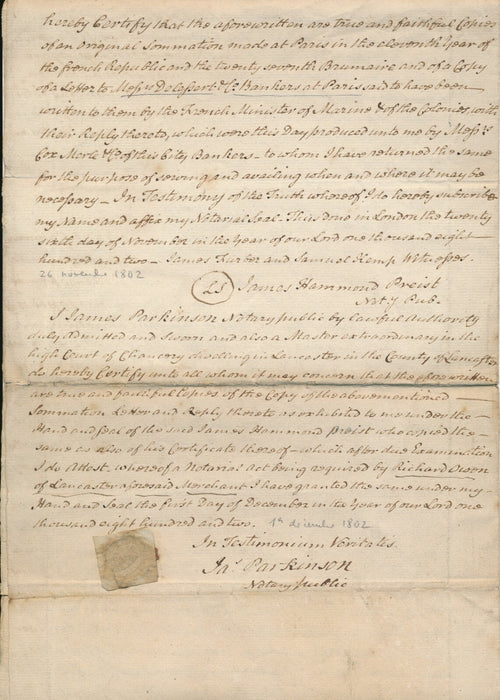 hereby Certify that the aforewritten are true and faithful Copies
of an Original Sommation made at Paris in the eleventh Year of
the French Republic and the twenty seventh Brumaire and of a Copy
of a Letter to Mess.rs Delessert & C.o Bankers at Paris said to have been
written to them by the French Minister of Marine & of the Colonies, with
their Reply thereto, which were this Day produced unto me by Mess.rs
Cox Merle & C.o of this City Bankers – to whom I have returned the same
for the purpose of serving and availing when and where it may be
necessary – In Testimony of the Truth whereof I do hereby subscribe
my Name and affix my Notarial Seal. This done in London the twenty
sixth day of November in the Year of our Lord one thousand eight
hundred and two – James Furber and Samuel Kemp Witnesses.
26 novembre 1802
LS James Hammond Preist
Not.y Pub.
I James Parkinson Notary public by lawful Authority
duly admitted and Sworn and also a Master extraordinary in the
high Court of Chancery dwelling in Lancaster in the County of Lancaster
do hereby Certify unto all whom it may concern that the aforewritten
are true and faithful Copies of the Copy of the abovementioned
Sommation Letter and Reply thereto as exhibited to me under the
Hand and Seal of the said James Hammond Preist who copied the
same as also of his Certificate thereof – which after due Examination
I do Attest. whereof a Notarial Act being required by Richard Owen
of Lancaster aforesaid Merchant I have granted the same under my
Hand and Seal the first Day of December in the Year of our Lord one
thousand eight hundred and two. 1er décembre 1802
In Testimonium Veritatis
Ja.s Parkinson
Notary public